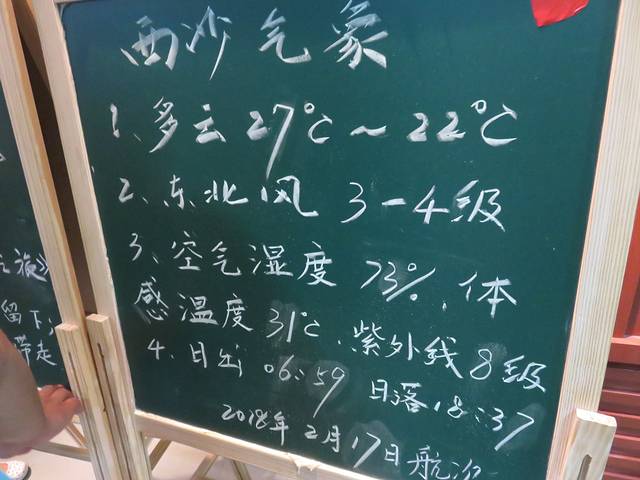 西沙气象
1、多云 27℃~22℃
2、东北风 3-4级
3、空气湿度 73%、体
感温度 31℃、紫外线8级
4、日出 06:59 日落18:37
2018年2月17日航次
留下,
带走